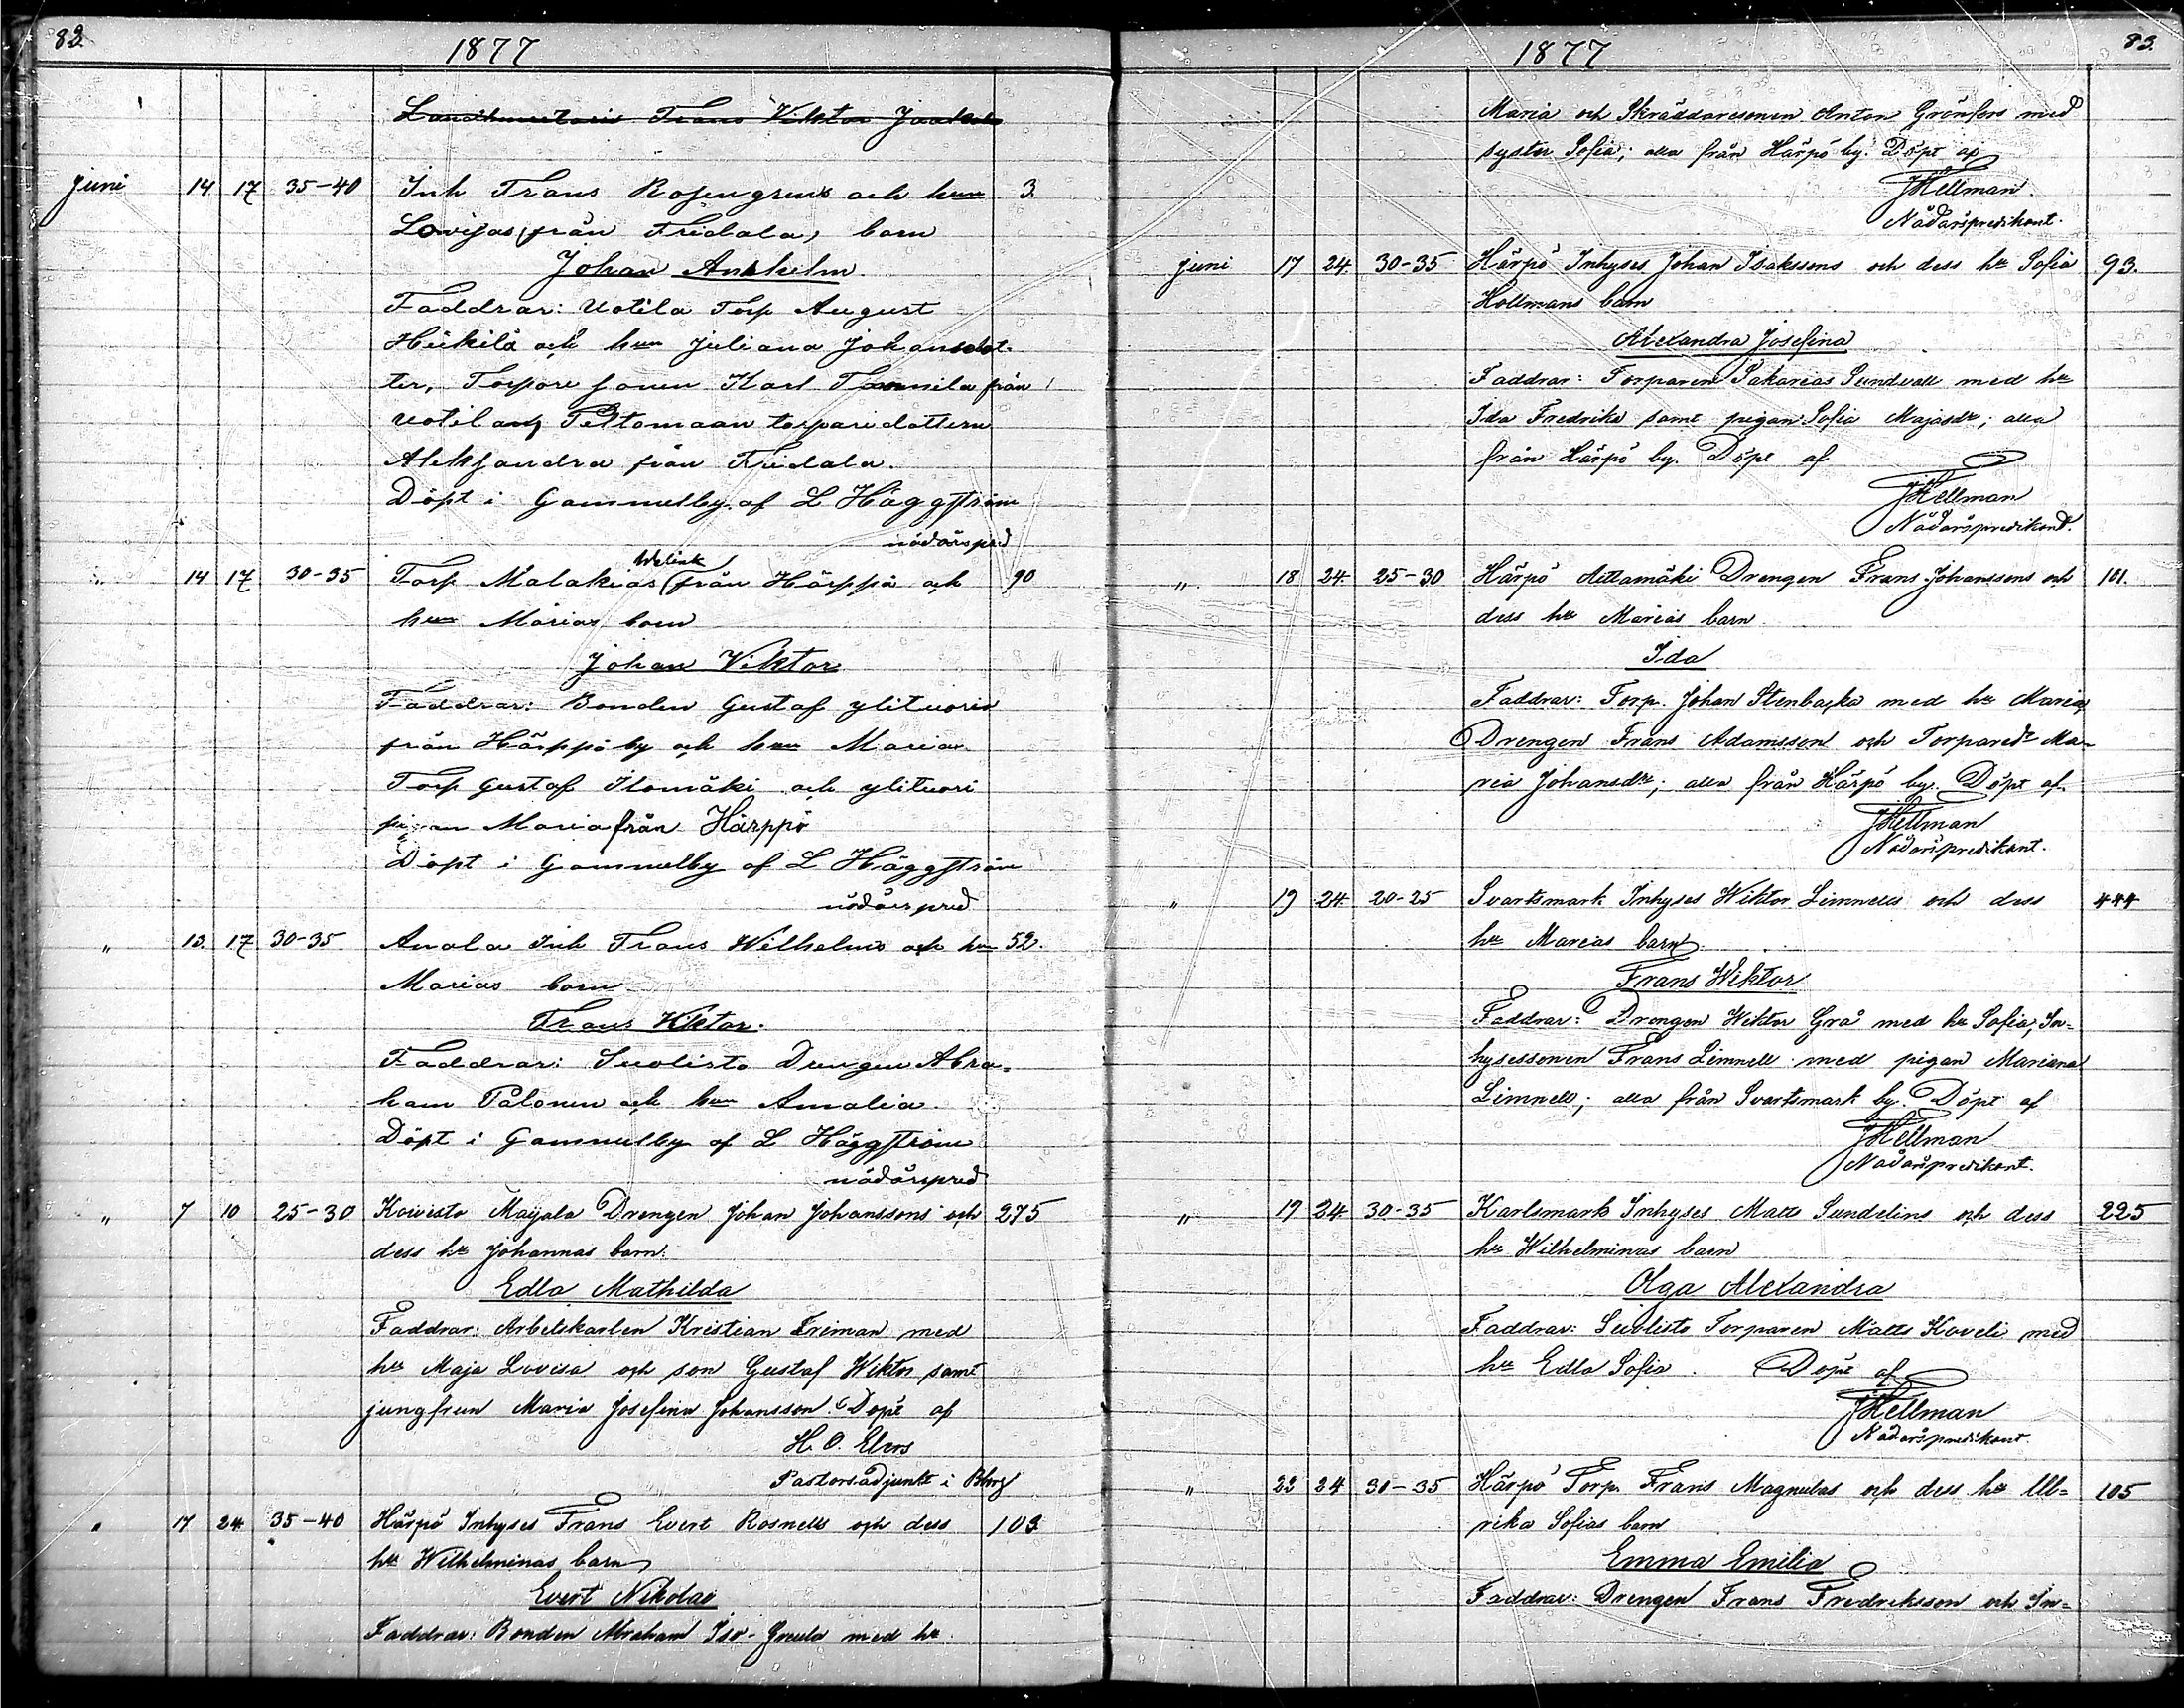 82.
1877
Frans Viktor
Juni 14 17 35-40 Inh Frans Rosengrens och hun 3.
Lovisas (från Fridala) barn
Johan Anshelm.
Faddrar: Uotila Torp August
Heikilä och hun Juliana Johansdot-
ter, Torpare sonen Karl Tammila från
Uotila och Peltomaan torparedottern
Aleksandra från Fridala.
Döpt i Gammelby af L Häggström
nådårspred
" 14 17 30-35 Torp Malakias Welink från Härppö och 90
hun Marias barn
Johan Viktor
Faddrar: Bonden Gustaf Ylituori
från Härppö by och hun Maria
Torp Gustaf Ilomäki och Ylituori
pigan Maria från Härppö
Döpt i Gammelby af L Häggström
nådårspred
" 13. 17 30-35 Anola Inh Frans Wilhelms och hun 52.
Marias barn
Frans Viktor.
Faddrar: Suolisto Drengen Abra-
ham Palonen och hun Amalia.
Döpt i Gammelby af L Häggström
nådårspred
" 7 10 25-30 Koivisto Maijala Drengen Johan Johanssons och 275
dess hu Johannas barn.
Edla Mathilda
Faddrar: Arbetskarlen Kristian Friman med
hu Maja Lovisa och son Gustaf Wiktor samt
jungfrun Maria Josefina Johansson. Döpt af
H. O. Elers
Pastorsadjunkt i Bborg
" 17 24 35-40 Härpö Inhyses Frans Evert Rosnells och dess 103.
hu Wilhelminas barn
Evert Nikolai
Faddrar: Bonden Abraham Iso- med hu
83.
1877
Maria och Skräddaresonen Anton Grönfors med
syster Sofia; alla från Härpö by. Döpt af
JHellman.
Nådårspredikant.
Juni 17 24. 30-35 Härpö Inhyses Johan Isakssons och dess hu Sofia 93.
Hollmans barn
Alexandra Josefina
Faddrar: Torparen Sakarias Sundvall med hu
Ida Fredrika samt pigan Sofia Majasdr; alla
från Härpö by. Döpt af
JHellman
Nådårspredikant.
" 18 24. 25-30 Härpö Aittamäki Drengen Frans Johanssons och 101.
dess hu Marias barn
Ida
Faddrar: Torp. Johan Stenbacka med hu Maria,
Drengen Frans Adamsson och Torparedr Ma-
ria Johansdr; alla från Härpö by. Döpt af
JHellman
Nådårspredikant.
" 19 24. 20-25 Svartsmark Inhyses Wiktor Limnells och dess 444
hu Marias barn
Frans Wiktor
Faddrar: Drengen Wiktor Grå med hu Sofia, In-
hysessonen Frans Limnell med pigan Mariana
Limnell; alla från Svartsmark by. Döpt af
JHellman
Nådårspredikant.
" 19 24 30-35 Karlsmark Inhyses Matts Sundelins och dess 225
hu Wilhelminas barn
Olga Alexandra
Faddrar: Suolisto Torparen Matts Koveli med
hu Edla Sofia. Döpt af
JHellman
Nådårspredikant.
" 22 24 30-35 Härpö Torp. Frans Magnulas och dess hu Ul- 105
rika Sofias barn
Emma Emilia
Faddrar: Drengen Frans Fredriksson och In-